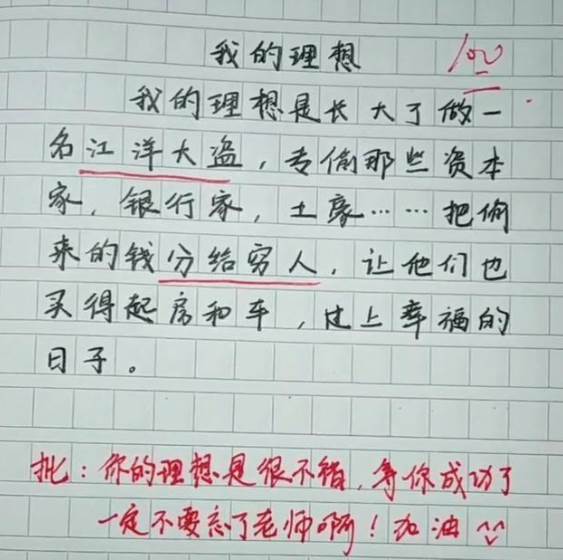 我的理想 100
我的理想是长大了做一
名江洋大盗，专偷那些资本
家，银行家，土豪……把偷
来的钱分给穷人，让他们也
买得起房和车，过上幸福的
日子。
批：你的理想是很不错，等你成功了
一定不要忘了老师啊！加油^^